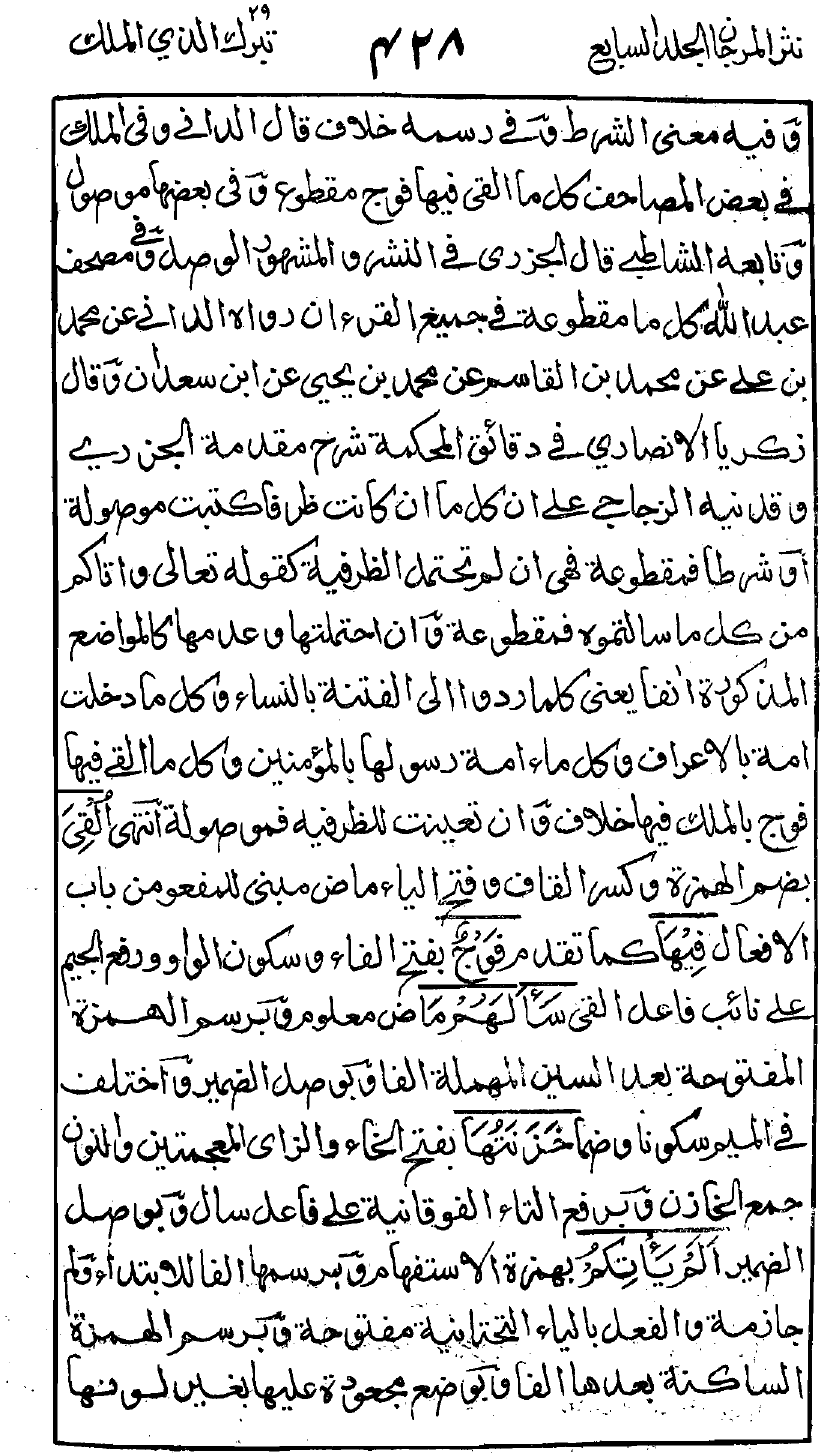 نثر المرجان الجلد السابع
٤٢٨
تبرك الذي ٢٩ الملك
وفيه معنى الشرط وفي رسمه خلاف قال الداني وفي الملك
في بعض المصاحف كل ما القى فيها فوج مقطوع وفي بعضها موصول
وتابعه الشاطبي قال الجزري في النشر والمشهور الوصل وفي مصحف
عبد الله كل ما مقطوعة في جميع القرءان رواه الداني عن محمد
بن علي عن محمد بن القاسم عن محمد بن يحيى عن ابن سعدان وقال
زكريا الانصاري في دقائق المحكمة شرح مقدمة الجزري
وقد نبه الزجاجي على ان كل ما ان كانت ظرفا كتبت موصولة
او شرطا فمقطوعة فهي ان لم تحتمل الظرفية كقوله تعالى واتاكم
من كل ما سالتموه فمقطوعة وان احتملتها وعدمها كالمواضع
المذكورة انفا يعني كلما ردوا الى الفتنة بالنساء وكل ما دخلت
امة بالاعراف وكل ماء امة رسولها بالمؤمنين وكل ما القى فيها
فوج بالملك فيها خلاف وان تعينت للظرفيه فموصولة انتهى أُلْقِيَ
بضم الهمزة وكسر القاف وفتح الياء ماض مبنى للمفعو من باب
الافعال فِيْهَا كما تقدم فَوْجٌ بفتح الفاء وسكون الواو ورفع الجيم
على نائب فاعل القى سَأَلَهُمْ مَاض معلوم وبرسم الهمزة
المفتوحة بعد السين المهملة الفا وبوصل الضمير واختلف
في الميم سكونا وضما خَزَنَتُهَا بفتح الخاء والزاى المعجمتين والنون
جمع الخازن وبرفع التاء الفوقانية على فاعل سال وبوصل
الضمير اَلَمْ يَأْتِكُمْ بهمزة الاستفهام وبرسمها الفا للابتداء ولم
جازمة والفعل بالياء التحتانية مفتوحة وبرسم الهمزة
الساكنة بعدها الفا وبوضع مجعودة عليها بغير لونها